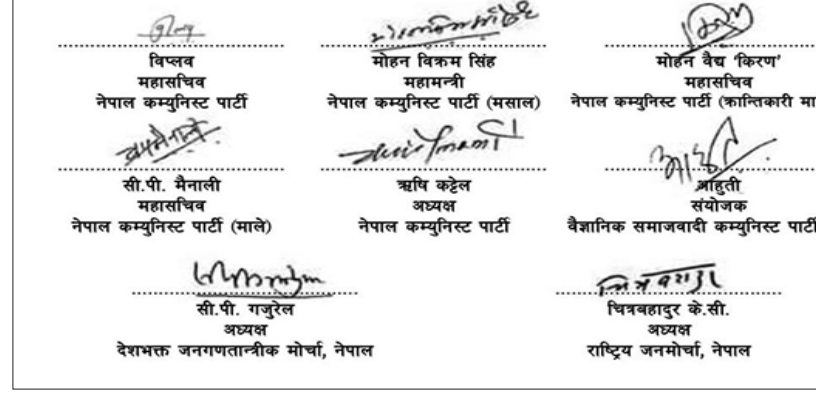 विप्लव
महासचिव
नेपाल कम्युनिस्ट पार्टी
मोहन विक्रम सिंह
महामन्त्री
नेपाल कम्युनिस्ट पार्टी (मसाल)
मोहन वैद्य 'किरण'
महासचिव
नेपाल कम्युनिस्ट पार्टी (क्रान्तिकारी मा
सी.पी. मैनाली
महासचिव
नेपाल कम्युनिस्ट पार्टी (माले)
ऋषि कट्टेल
अध्यक्ष
नेपाल कम्युनिस्ट पार्टी
आहुती
संयोजक
वैज्ञानिक समाजवादी कम्युनिस्ट पार्टी
सी.पी. गजुरेल
अध्यक्ष
देशभक्त जनगणतान्त्रीक मोर्चा, नेपाल
चित्रबहादुर के.सी.
अध्यक्ष
राष्ट्रिय जनमोर्चा, नेपाल